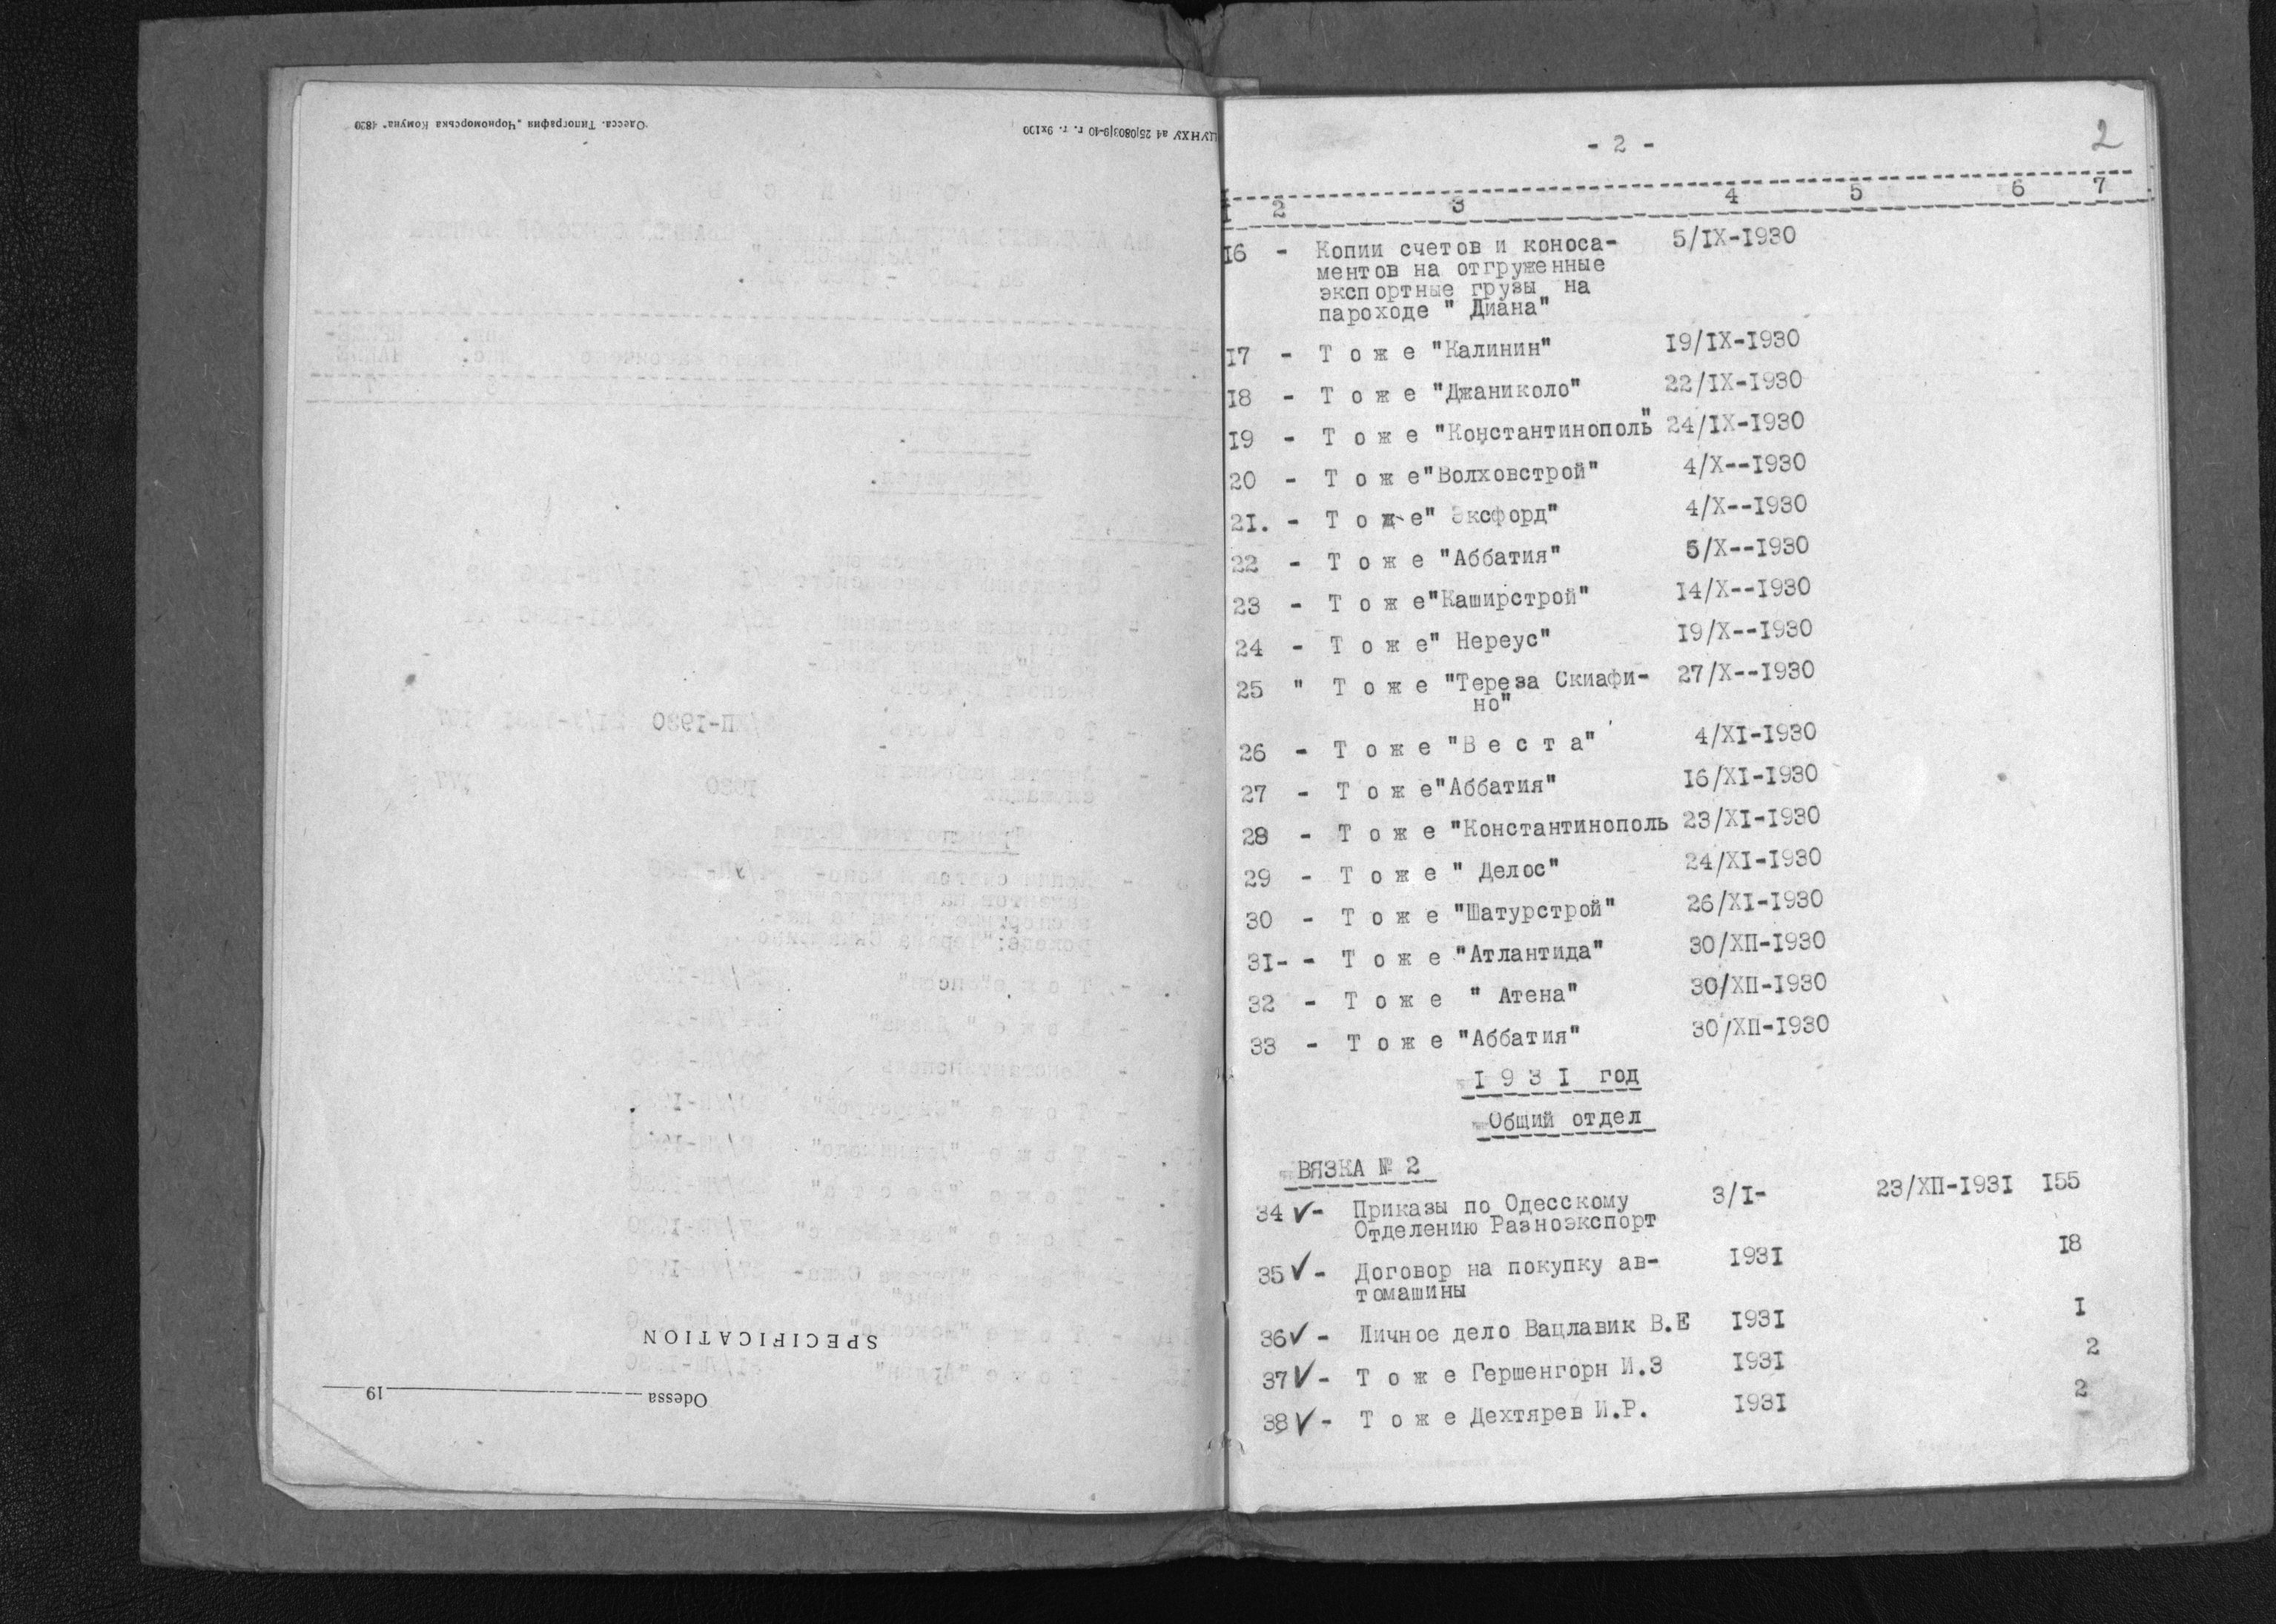 Одесса. Типография „Чорноморська Комуна" 4830
ЦУНХУ а4 25/0803/9-40 г. г. 9х100
SPECIFICATION
Odessa 19
- 2 -
2
I 2 3 4 5 6 7
I6 - Копии счетов и коноса- 5/IX-I930
ментов на отгруженные
экспортные грузы на
пароходе " Диана"
I7 - Т о ж е "Калинин" I9/IX-I930
I8 - Т о ж е "Джаниколо" 22/IX-I930
I9 - Т о ж е "Константинополь" 24/IX-I930
20 - Т о ж е"Волховстрой" 4/X--I930
2I. - Т о ж е" Эксфорд" 4/X--I930
22 - Т о ж е "Аббатия" 5/X--I930
23 - Т о ж е"Каширстрой" I4/X--I930
24 - Т о ж е" Нереус" I9/X--I930
25 " Т о ж е "Тереза Скиафи- 27/X--I930
но"
26 - Т о ж е "В е с т а" 4/XI-I930
27 - Т о ж е"Аббатия" I6/XI-I930
28 - Т о ж е "Константинополь 23/XI-I930
29 - Т о ж е " Делос" 24/XI-I930
30 - Т о ж е "Шатурстрой" 26/XI-I930
3I- - Т о ж е "Атлантида" 30/XП-I930
32 - Т о ж е " Атена" 30/XП-I930
33 - Т о ж е "Аббатия" 30/XП-I930
I 9 3 I год
Общий отдел
ВЯЗКА № 2
34 ✓- Приказы по Одесскому 3/I- 23/XП-I93I I55
Отделению Разноэкспорт
35 ✓- Договор на покупку ав- I93I I8
томашины
36 ✓- Личное дело Вацлавик В.Е I93I I
37 ✓- Т о ж е Гершенгорн И.З I93I 2
38 ✓- Т о ж е Дехтярев И.Р. I93I 2